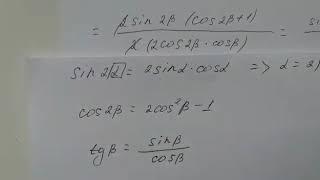 = 2 sin 2β (cos 2β + 1) / 2 (2 cos 2β · cosβ) = sin
sin 2α = 2 sinα · cosα => α = 2β
cos 2β = 2cos²β − 1
tg β = sinβ / cosβ